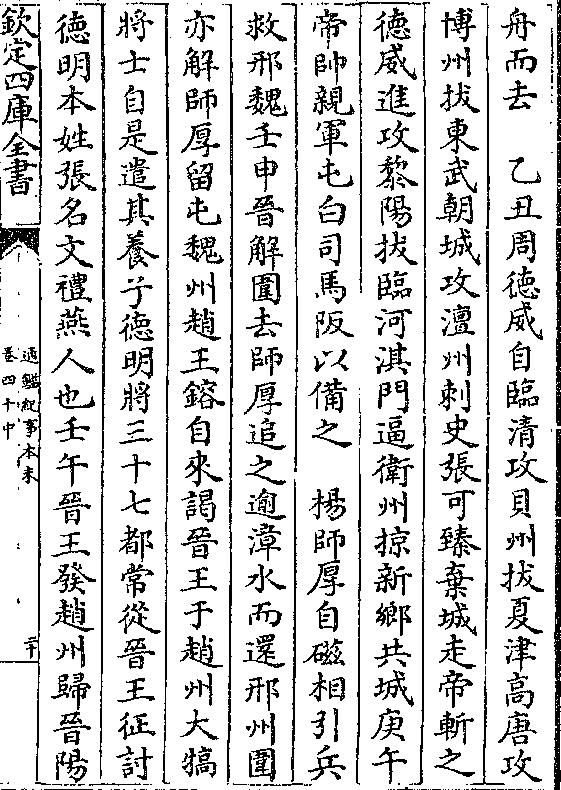 舟而去　乙丑周德威自臨清攻貝州拔夏津高唐攻
博州拔東武朝城攻澶州刺史張可臻棄城走帝斬之
德威進攻黎陽拔臨河淇門逼衛州掠新鄉共城庚午
帝帥親軍屯白司馬阪以備之　楊師厚自磁相引兵
救邢魏壬申晉解圍去師厚追之逾漳水而還邢州圍
亦解師厚留屯魏州趙王鎔自來謁晉王于趙州大犒
將士自是遣其養子德明將三十七都常從晉王征討
德明本姓張名文禮燕人也壬午晉王發趙州歸晉陽
欽定四庫全書
通鑑紀事本末
卷四十中
二十